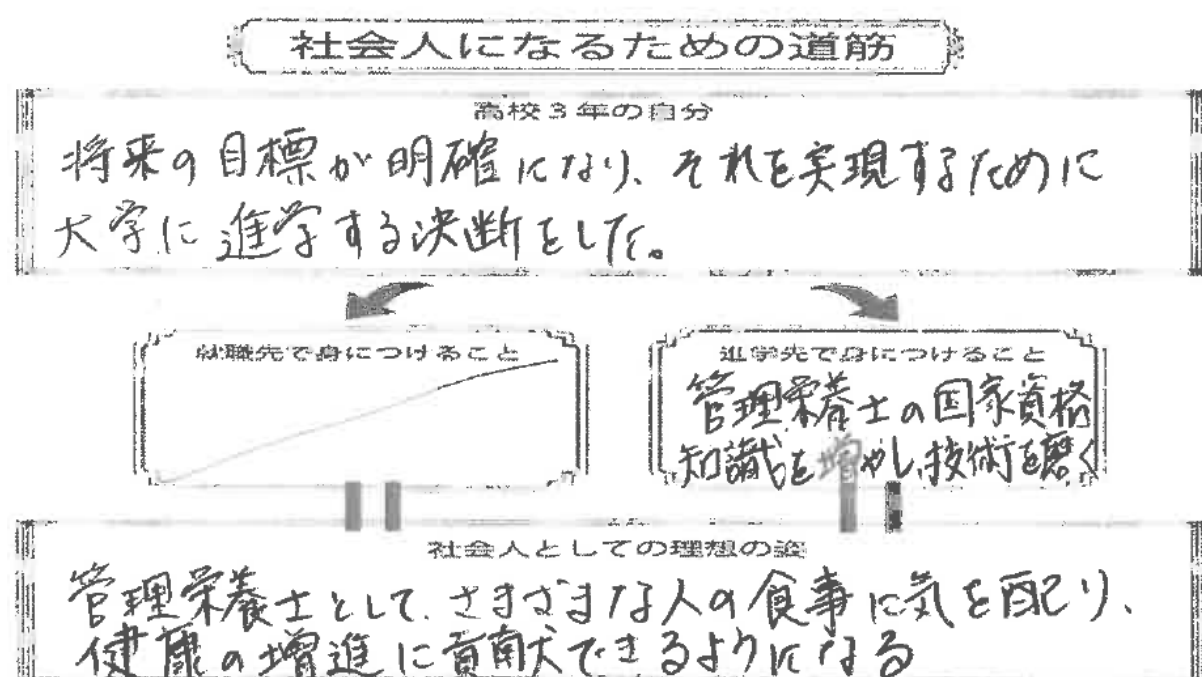 社会人になるための道筋
高校3年の自分
将来の目標が明確になり、それを実現するために
大学に進学する決断をした。
就職先で身につけること
進学先で身につけること
管理栄養士の国家資格
知識を増やし、技術を磨く
社会人としての理想の姿
管理栄養士として、さまざまな人の食事に気を配り、
健康の増進に貢献できるようになる